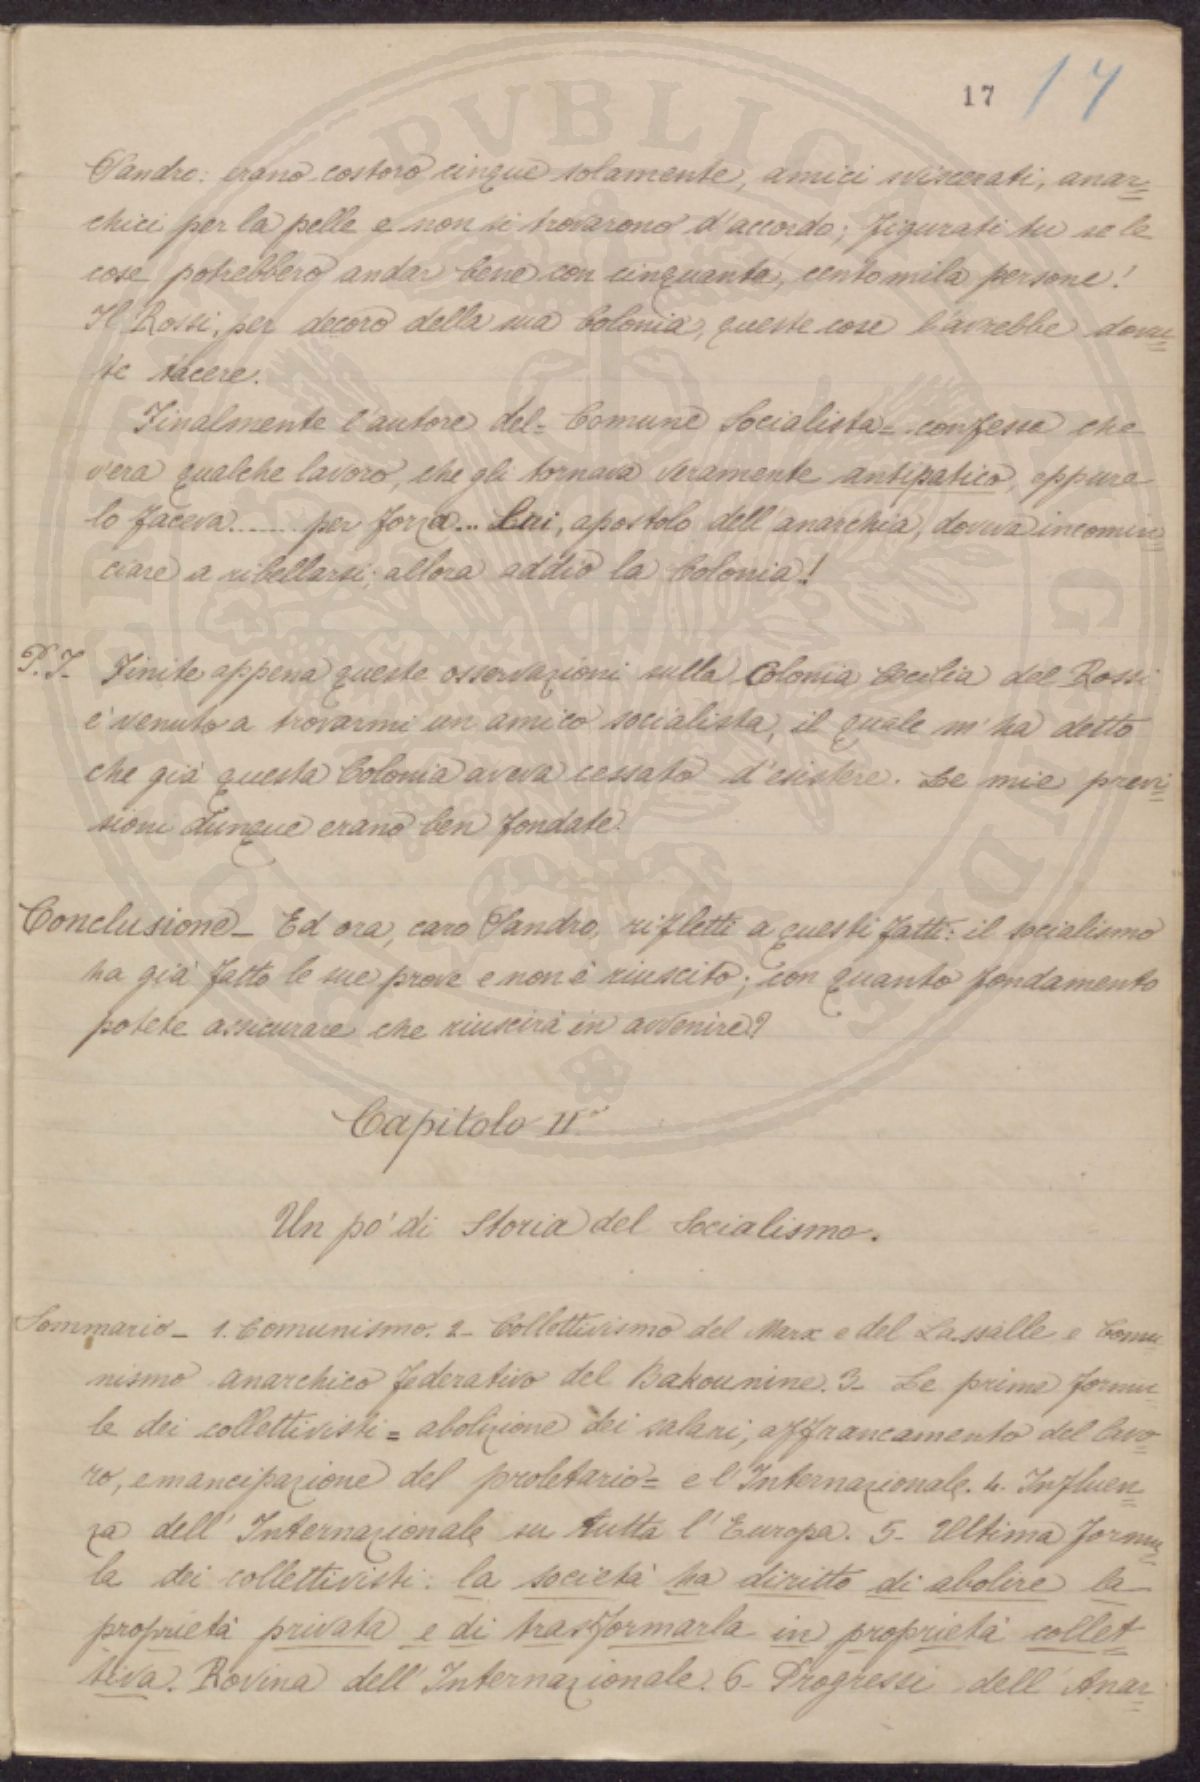 17 17
Sandro: erano costoro cinque solamente, amici sviscerati, anar=
chici per la pelle e non si trovarono d'accordo; figurati tu se le
cose potrebbero andar bene con cinquanta, centomila persone!
Il Rossi, per decoro della sua Colonia, queste cose l'avrebbe dovu=
te tacere.
Finalmente l'autore del= Comune Socialista= confessa che
v'era qualche lavoro, che gli tornava veramente antipatico, eppure
lo faceva....... per forza... Lui, apostolo dell'anarchia, doveva incomin=
ciare a ribellarsi; allora addio la Colonia!
P.S. Finite appena queste osservazioni sulla Colonia Cecilia del Rossi
è venuto a trovarmi un amico socialista, il quale m'ha detto
che già questa Colonia aveva cessato d'esistere. Le mie previ=
sioni dunque erano ben fondate.
Conclusione_ Ed ora, caro Sandro, rifletti a questi fatti: il socialismo
ha già fatto le sue prove e non è riuscito; con quanto fondamento
potete assicurare che riuscirà in avvenire?
Capitolo II°
Un po' di Storia del Socialismo.
Sommario_ 1. Comunismo. 2_ Collettivismo del Marx e del Lassalle e Comu=
nismo anarchico federativo del Bakounine. 3_ Le prime formu=
le dei collettivisti = abolizione dei salari, affrancamento del lavo=
ro, emancipazione del proletario= e l'Internazionale. 4. Influen=
za dell'Internazionale su tutta l'Europa. 5_ Ultima formu=
la dei collettivisti: la società ha diritto di abolire la
proprietà privata e di trasformarla in proprietà collet=
tiva. Rovina dell'Internazionale. 6_ Progressi dell'Anar=